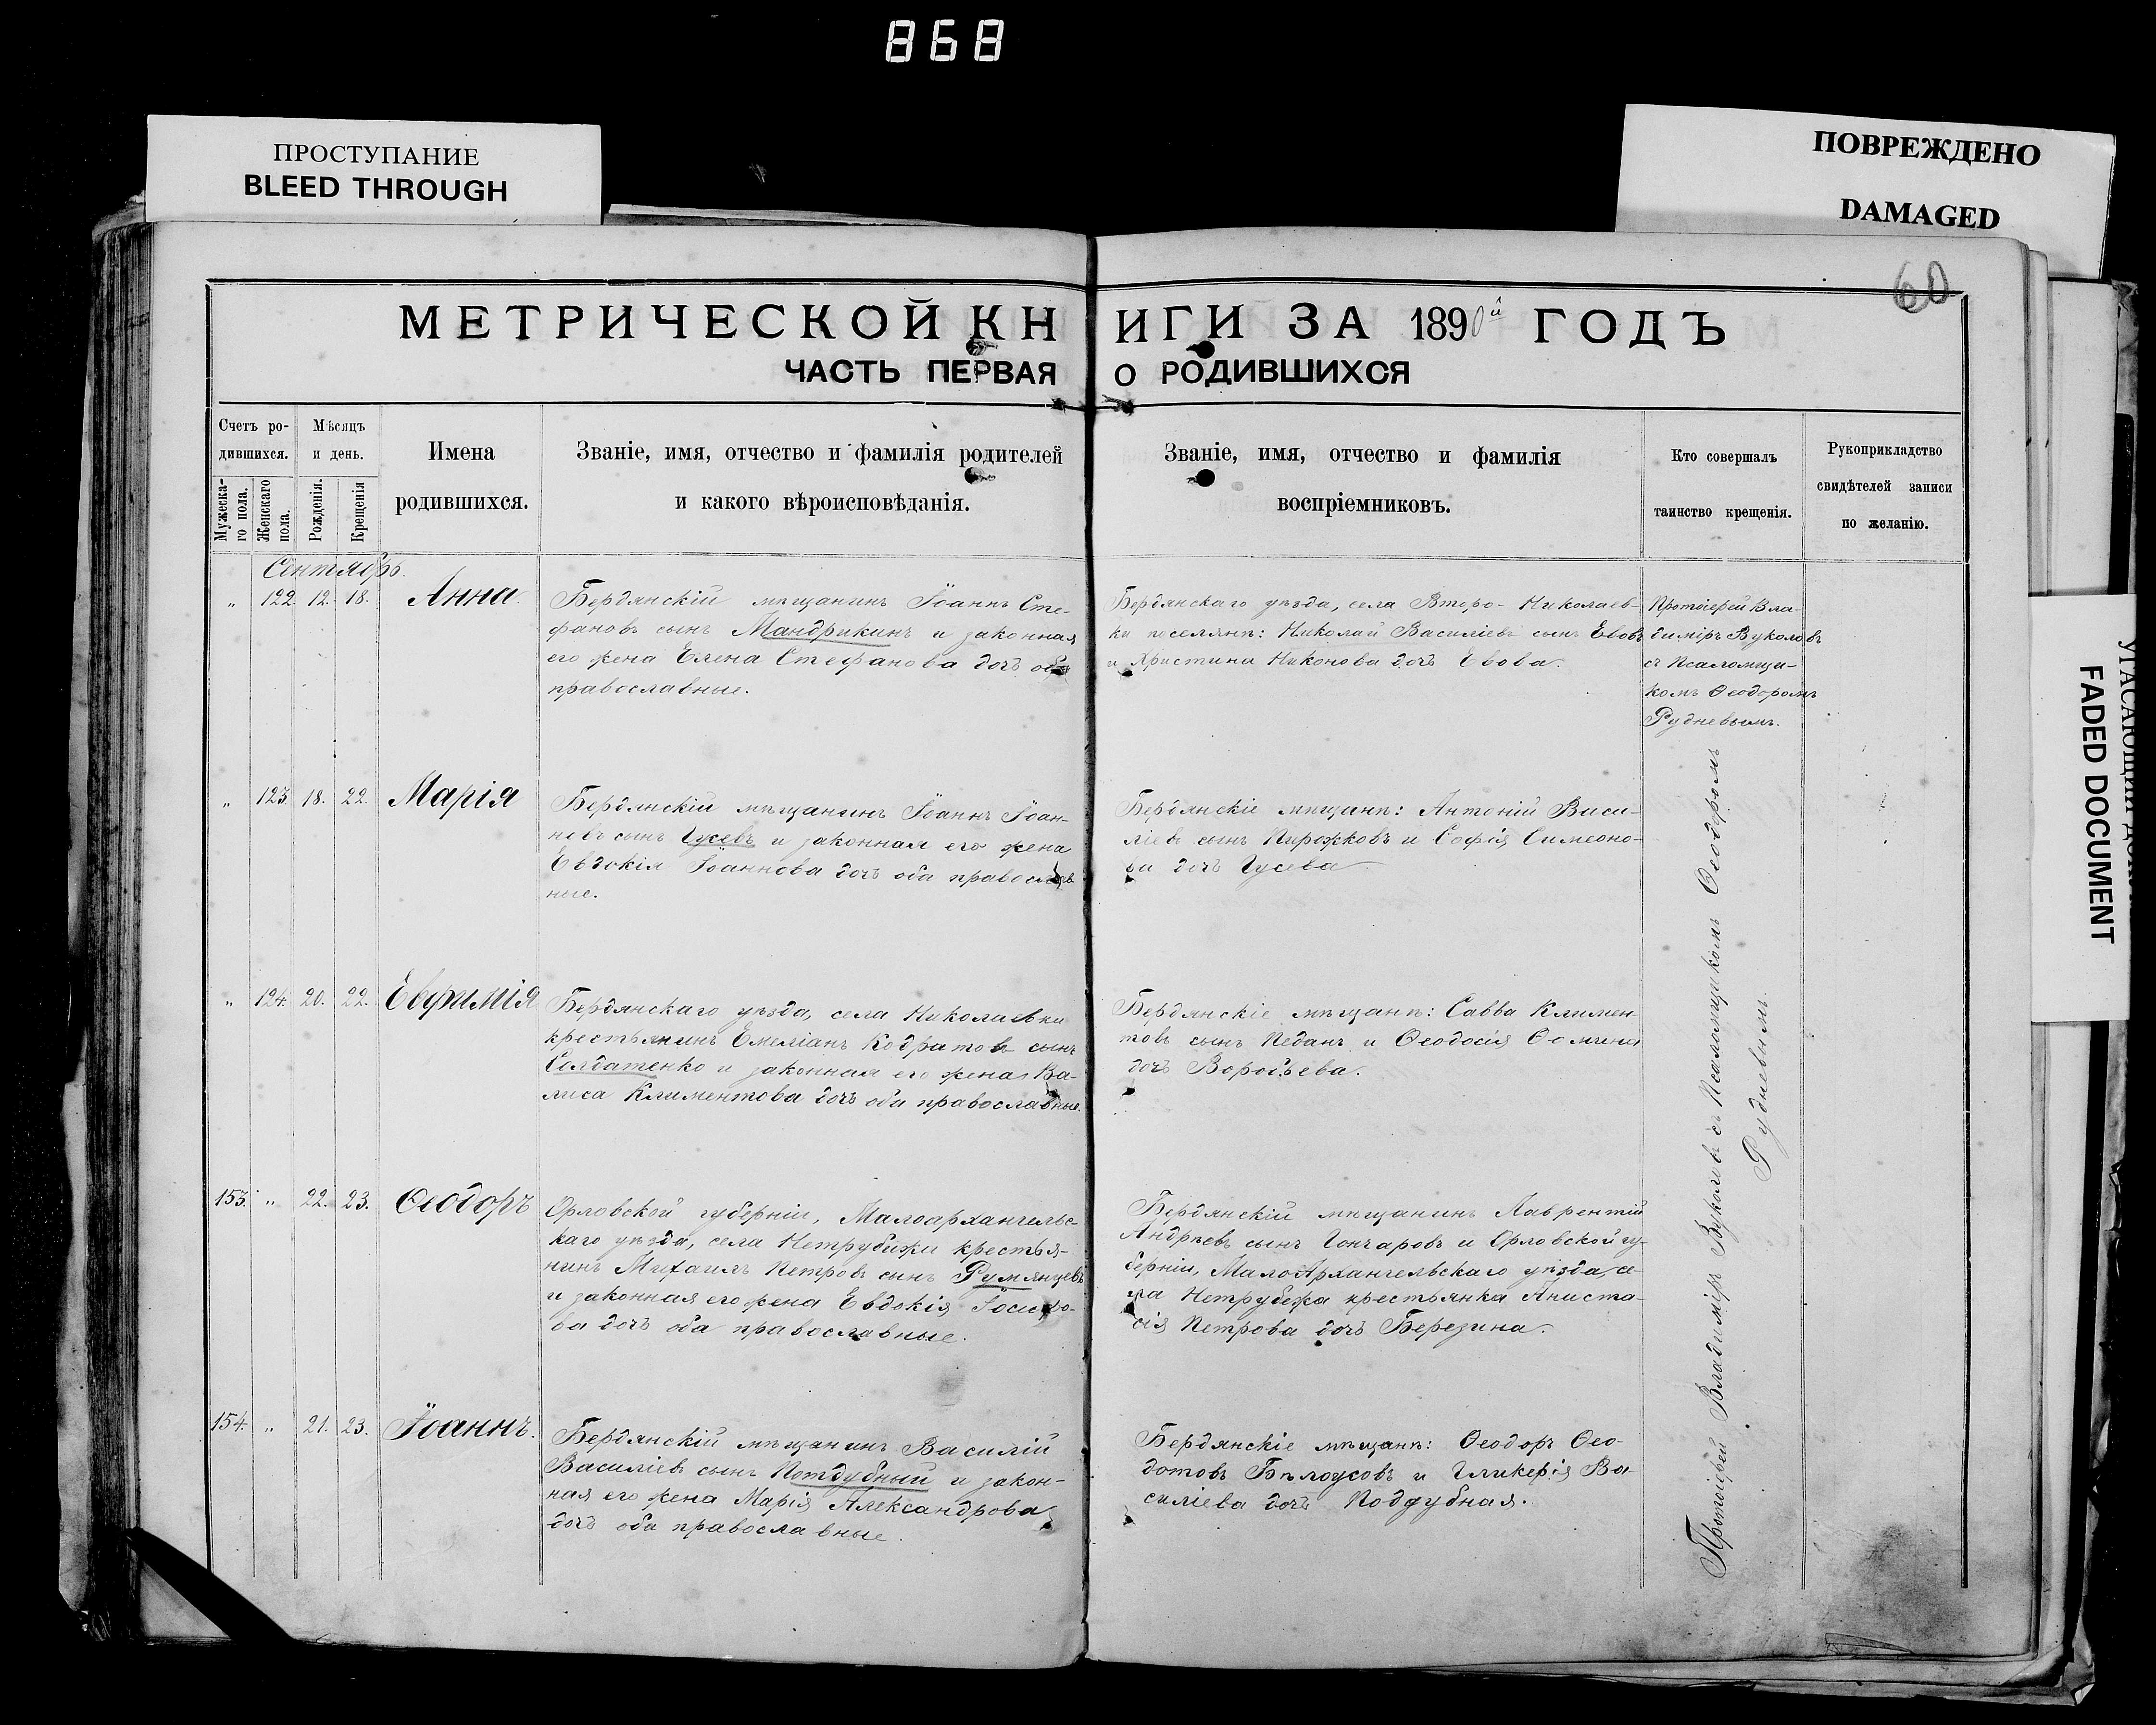 868
ПРОСТУПАНИЕ
BLEED THROUGH
ПОВРЕЖДЕНО
DAMAGED
УГАСАЮЩИЙ
FADED DOCUMENT
60
МЕТРИЧЕСКОЙ КНИГИ ЗА 1890й ГОДЪ
ЧАСТЬ ПЕРВАЯ О РОДИВШИХСЯ
Счетъ ро-
дившихся.
Мужеска-
го пола.
Женскаго
пола.
Мѣсяцъ
и день.
Рожденія.
Крещенія
Имена
родившихся.
Званіе, имя, отчество и фамилія родителей
и какого вѣроисповѣданія.
Званіе, имя, отчество и фамилія
воспріемниковъ.
Кто совершалъ
таинство крещенія.
Рукоприкладство
свидѣтелей записи
по желанію.
Сентябрь.
„ 122. 12. 18. Анна
Бердянскій мѣщанинъ Іоаннъ Сте-
фановъ сынъ Мандрикинъ и законная
его жена Елена Стефанова дочь оба
православные.
Бердянскаго уѣзда, села Второ-Николаев-
ки поселяне: Николай Василіевъ сынъ Евовъ
и Христина Никонова дочь Евова.
Протоіерей Вла-
диміръ Вуколовъ
съ Псаломщи-
комъ Ѳеодоромъ
Рудневымъ.
„ 123. 18. 22. Марія
Бердянскій мѣщанинъ Іоаннъ Іоан-
новъ сынъ Гусевъ и законная его жена
Евдокія Іоаннова дочь оба православ-
ные.
Бердянскіе мѣщане: Антоній Васи-
ліевъ сынъ Пирожковъ и Софія Симеоно-
ва дочь Гусева
„ 124. 20. 22. Евфимія
Бердянскаго уѣзда, села Николаевки
крестьянинъ Емеліанъ Кодратовъ сынъ
Солдатенко и законная его жена Ва-
лиса Климентова дочь оба православные.
Бердянскіе мѣщане: Савва Климен-
товъ сынъ Педанъ и Ѳеодосія Ѳомина
дочь Воробьева.
153. „ 22. 23. Ѳеодоръ
Орловской губерніи, Малоархангельс-
каго уѣзда, села Нетрубижи крестья-
нинъ Михаилъ Петровъ сынъ Румянцевъ
и законная его жена Евдокія Іосифо-
ва дочь оба православные.
Бердянскій мѣщанинъ Лаврентій
Андреевъ сынъ Гончаровъ и Орловской гу-
берніи, МалоАрхангельскаго уѣзда, се-
ла Нетрубежа крестьянка Анаста-
сія Петрова дочь Березина.
154. „ 21. 23. Іоаннъ.
Бердянскій мѣщанинъ Василій
Василіевъ сынъ Потдубный и закон-
ная его жена Марія Александрова
дочь оба православные.
Бердянскіе мѣщане: Ѳеодоръ Ѳео-
дотовъ Бѣлоусовъ и Гликерія Ва-
силіева дочь Поддубная.
Протоіерей Владиміръ Вуколовъ съ Псаломщикомъ Ѳеодоромъ
Рудневымъ.